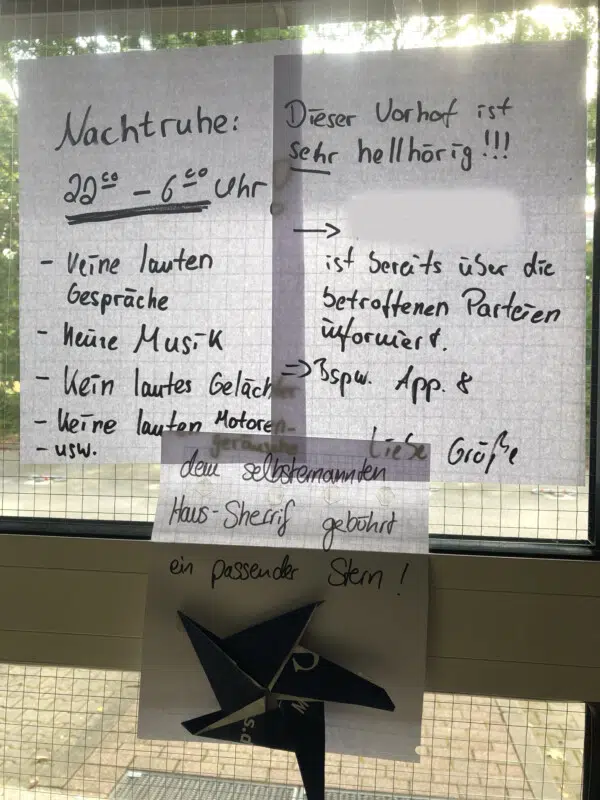 Nachtruhe:
22⁰⁰ – 6⁰⁰ Uhr
- Keine lauten
Gespräche
- keine Musik
- Kein lautes Gelächter
- Keine lauten Motoren-
geräusche
- usw.
Dieser Vorhof ist
sehr hellhörig!!!
→
ist bereits über die
betroffenen Parteien
informiert.
=> Bspw. App. 8
Liebe Größe
dem selbsternannten
Haus-Sherrif gebührt
ein passender Stern!